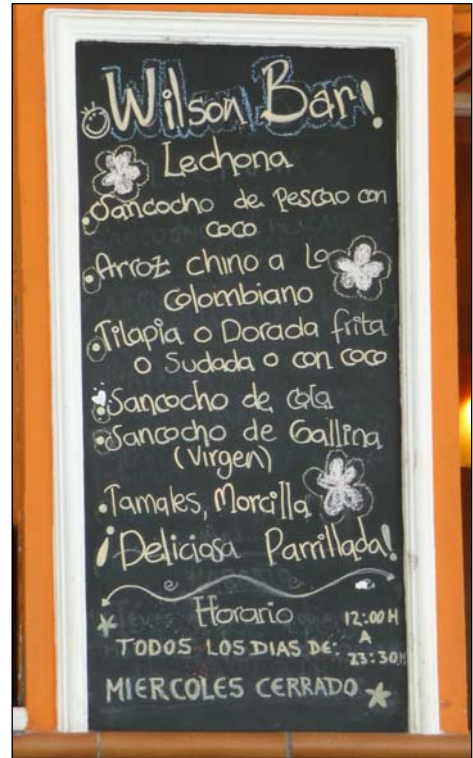 Wilson Bar!
Lechona
Sancocho de Pescao con
coco
Arroz chino a Lo
Colombiano
Tilapia o Dorada frita
o Sudada o con coco
Sancocho de cola
Sancocho de Gallina
(Virgen)
Tamales, Morcilla
¡Deliciosa Parrillada!
Horario
12:00 H
TODOS LOS DIAS DE: A
23:30H
MIERCOLES CERRADO